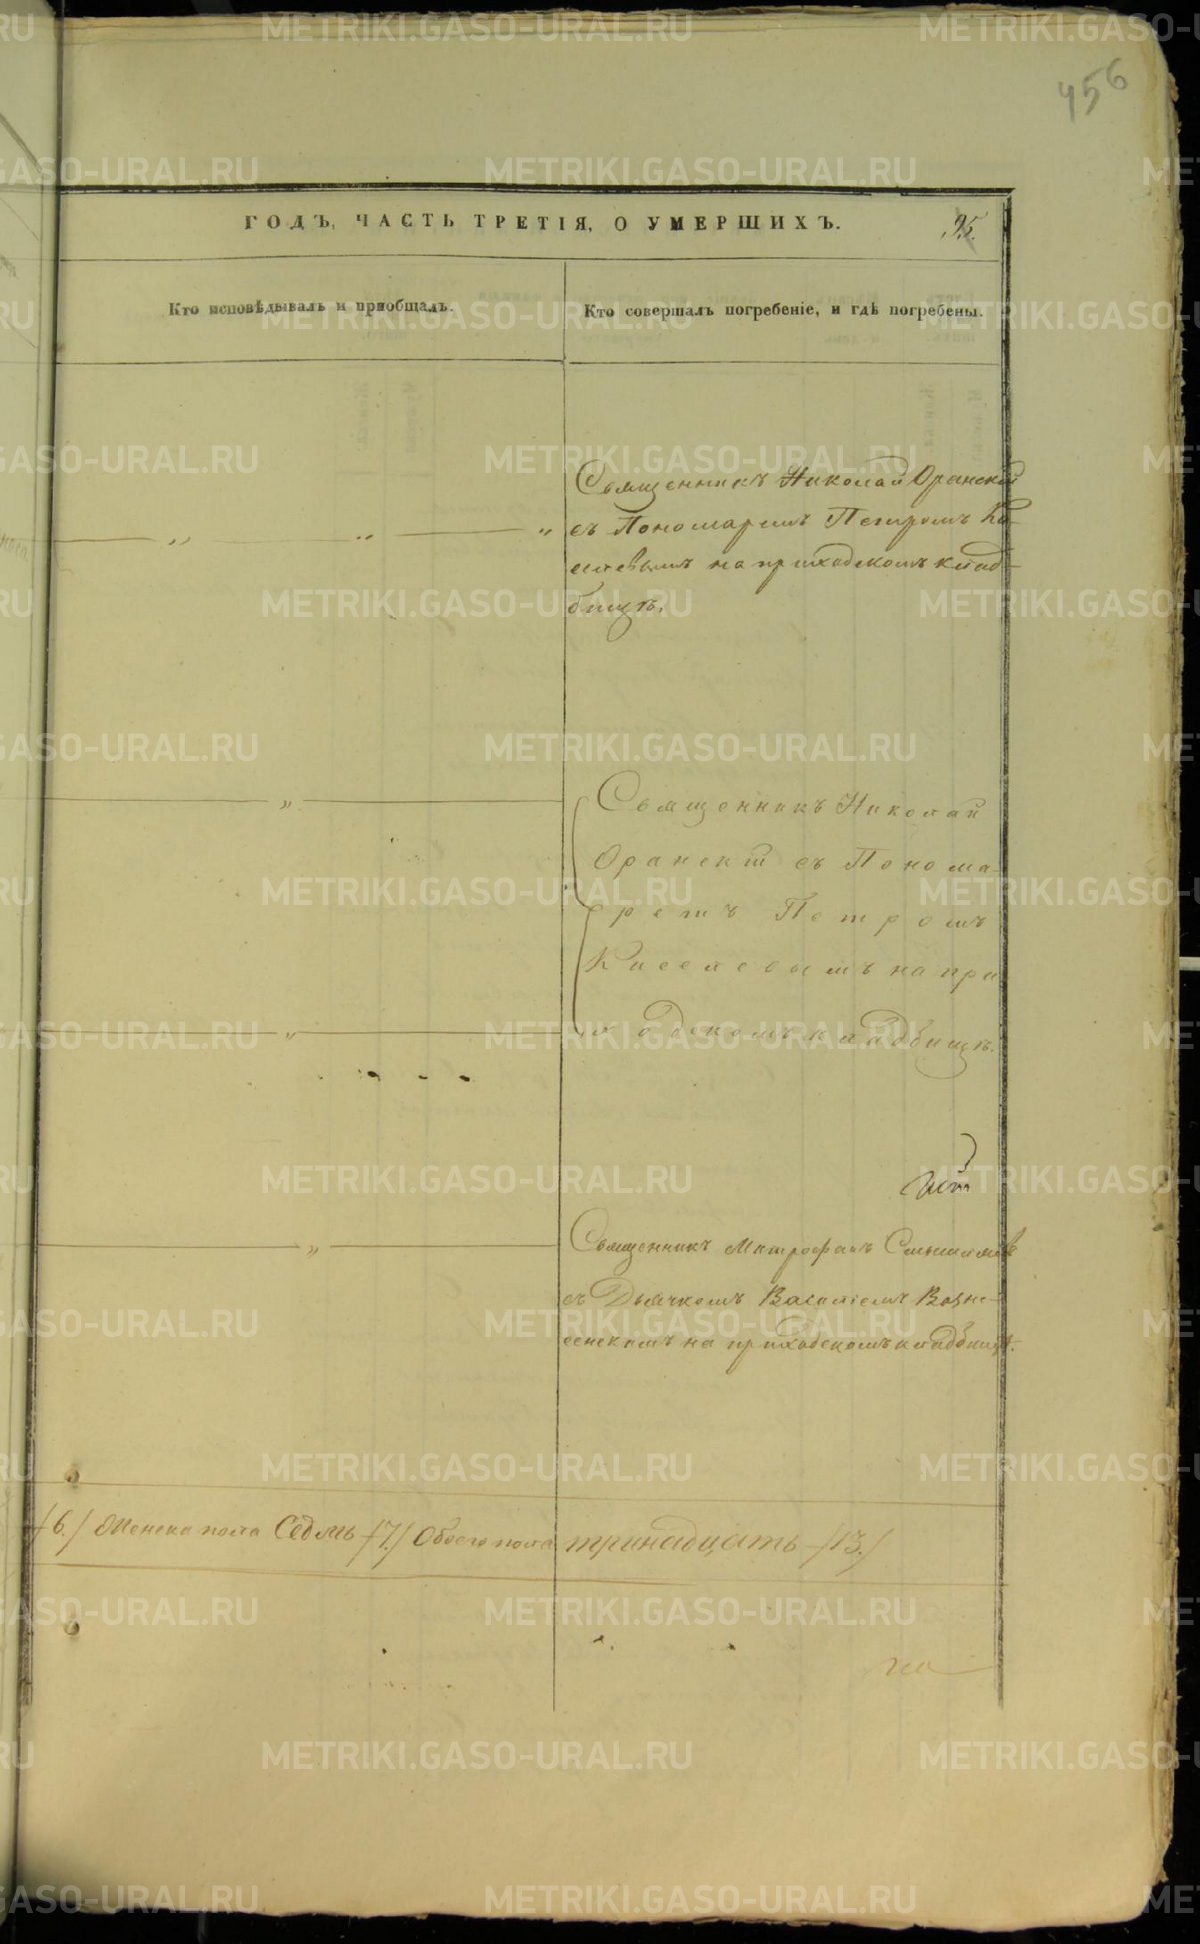 456
ГОДЪ, ЧАСТЬ ТРЕТІЯ, О УМЕРШИХЪ.
95.
Кто исповѣдывалъ и пріобщалъ.
Кто совершалъ погребеніе, и гдѣ погребены.
Священникъ Николай Оранскій
съ Пономаремъ Петромъ Ки-
селевымъ на приходскомъ клад-
бищѣ.
Священникъ Николай
Оранскій съ Понома-
ремъ Петромъ
Киселевымъ на при
ходскомъ кладбищѣ.
Священникъ Митрофанъ
съ Дьячкомъ Василіемъ Возне-
сенскимъ на приходскомъ кладбищѣ.
/6./ Женска пола Седмь /7./ Обоего пола тринадцать /13./
METRIKI.GASO-URAL.RU